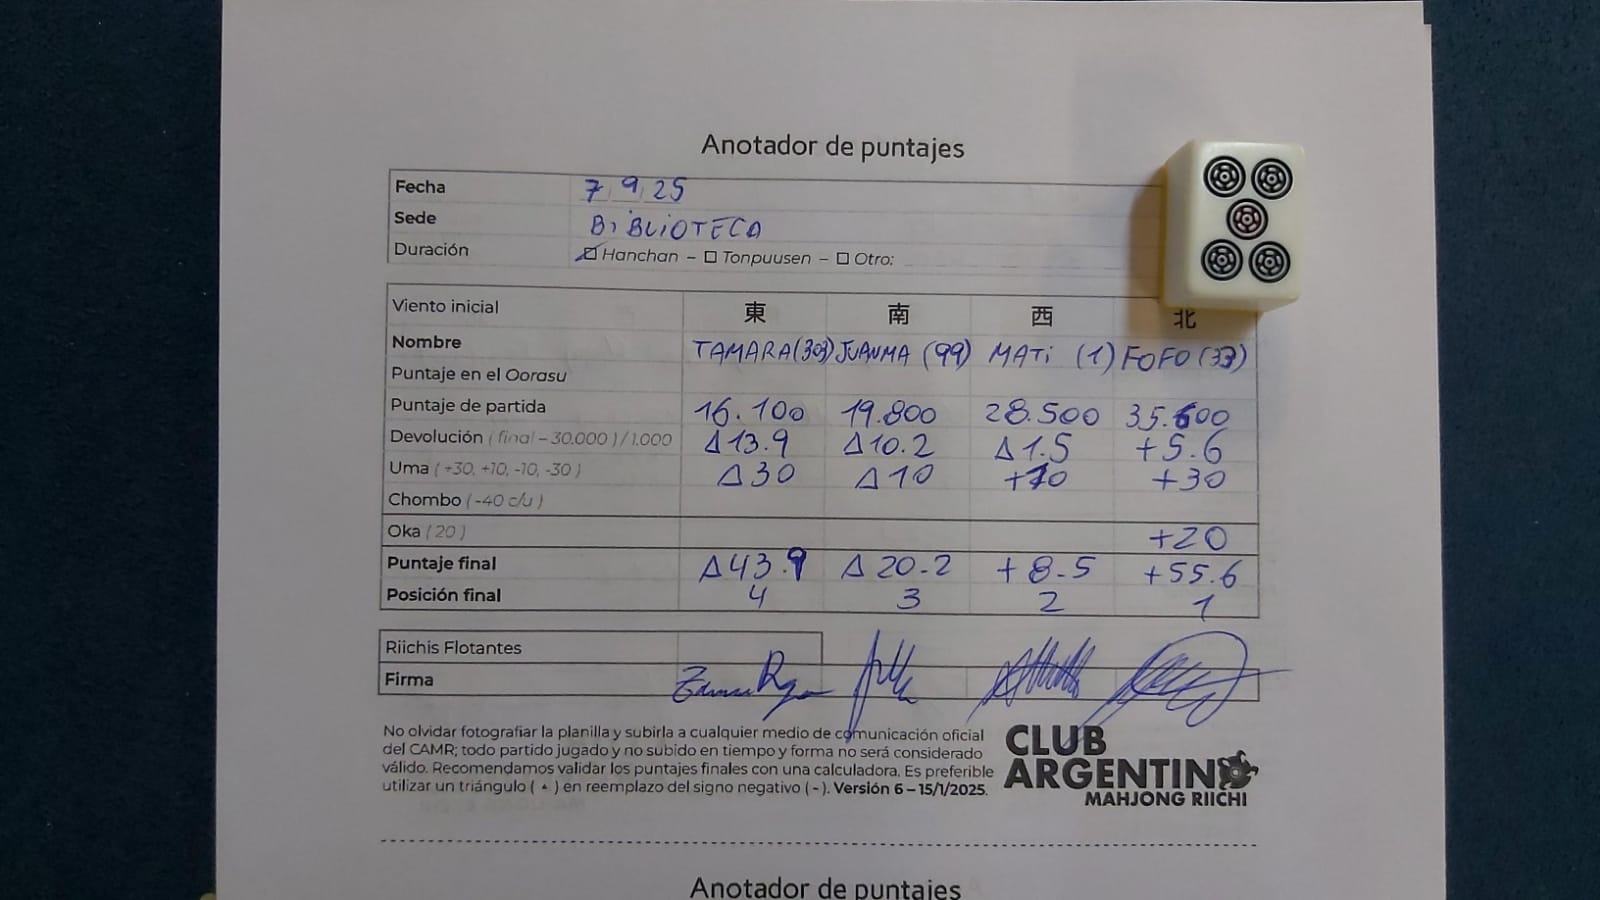 Anotador de puntajes
Fecha 7 9 25
Sede BIBLIOTECA
Duración ☑ Hanchan – ☐ Tonpuusen – ☐ Otro:
Viento inicial 東 南 西 北
Nombre TAMARA(303) JUANMA (99) MATI (1) FOFO (33)
Puntaje en el Oorasu
Puntaje de partida 16.100 19.800 28.500 35.600
Devolución ( final – 30.000 ) / 1.000 Δ13.9 Δ10.2 Δ1.5 +5.6
Uma ( +30, +10, -10, -30 ) Δ30 Δ10 +10 +30
Chombo ( -40 c/u )
Oka ( 20 ) +20
Puntaje final Δ43.9 Δ20.2 +8.5 +55.6
Posición final 4 3 2 1
Riichis Flotantes
Firma
No olvidar fotografiar la planilla y subirla a cualquier medio de comunicación oficial
del CAMR; todo partido jugado y no subido en tiempo y forma no será considerado
válido. Recomendamos validar los puntajes finales con una calculadora. Es preferible
utilizar un triángulo ( ▲ ) en reemplazo del signo negativo ( - ). Versión 6 – 15/1/2025.
CLUB
ARGENTINO
MAHJONG RIICHI
Anotador de puntajes